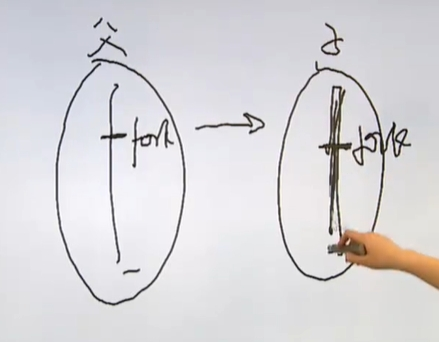 父
子
fork
fork